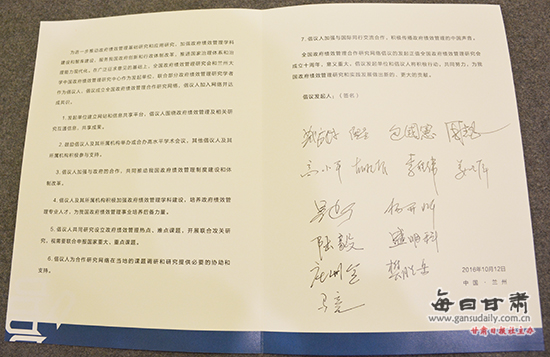 为进一步推动政府绩效管理基础研究和应用研究，加强政府绩效管理学科
建设和智库建设，服务我国政府创新和行政体制改革，推进国家治理体系和治
理能力现代化，在广泛征求意见的基础上，全国政府绩效管理研究会和兰州大
学中国政府绩效管理研究中心作为发起单位，联合部分政府绩效管理研究学者
作为倡议人，倡议成立全国政府绩效管理合作研究网络，倡议人加入网络并达
成共识。
1.发起单位建立网站和信息共享平台，倡议人围绕政府绩效管理及相关研
究互通信息、共享成果。
2.鼓励倡议人及其所属机构举办或合办高水平学术会议，其他倡议人及其
所属机构积极参与支持。
3.倡议人加强与政府的合作，共同推动我国政府绩效管理制度建设和体
制改革。
4.倡议人及其所属机构积极加强政府绩效管理学科建设，培养政府绩效管
理专业人才，为我国政府绩效管理事业培养后备力量。
5.倡议人共同研究设立政府绩效管理热点、难点课题，开展联合攻关研
究，视需要联合申报国家重大、重点课题。
6.倡议人为合作研究网络在当地的课题调研和研究提供必要的协助和
支持。
7.倡议人加强与国际同行交流合作，积极传播政府绩效管理的中国声音。
全国政府绩效管理合作研究网络倡议的发起正值全国政府绩效管理研究会
成立十周年，意义重大，倡议发起单位和倡议人将积极行动，共同努力，为我
国政府绩效管理研究和实践发展做出新的、更大的贡献。
倡议发起人：（签名）
包国宪
高小平
陆毅 盛明科
2016年10月12日
中国·兰州
每日甘肃
www.gansudaily.com.cn
甘肃日报社主办